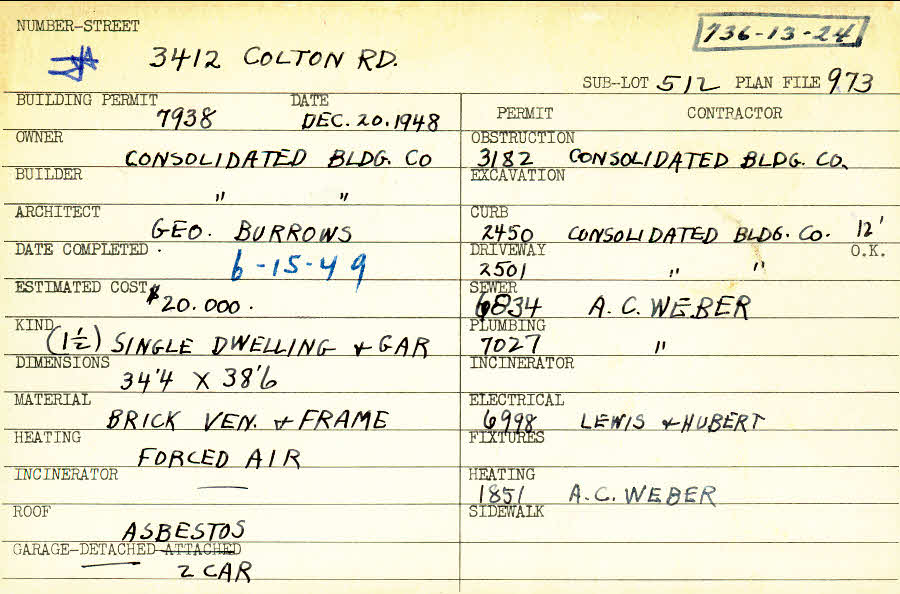 NUMBER-STREET
736-13-24
3412 COLTON RD.
SUB-LOT 512 PLAN FILE 973
BUILDING PERMIT DATE
7938 DEC. 20. 1948
OWNER
CONSOLIDATED BLDG. CO
BUILDER
" "
ARCHITECT
GEO. BURROWS
DATE COMPLETED.
6-15-49
ESTIMATED COST
$20.000.
KIND
(1½) SINGLE DWELLING & GAR
DIMENSIONS
34'4 X 38'6
MATERIAL
BRICK VEN. & FRAME
HEATING
FORCED AIR
INCINERATOR
—
ROOF
ASBESTOS
GARAGE-DETACHED ATTACHED
2 CAR
PERMIT CONTRACTOR
OBSTRUCTION
3182 CONSOLIDATED BLDG. CO.
EXCAVATION
CURB
2450 CONSOLIDATED BLDG. CO. 12'
DRIVEWAY O.K.
2501 " "
SEWER
6834 A. C. WEBER
PLUMBING
7027 "
INCINERATOR
ELECTRICAL
6998 LEWIS & HUBERT
FIXTURES
HEATING
1851 A. C. WEBER
SIDEWALK